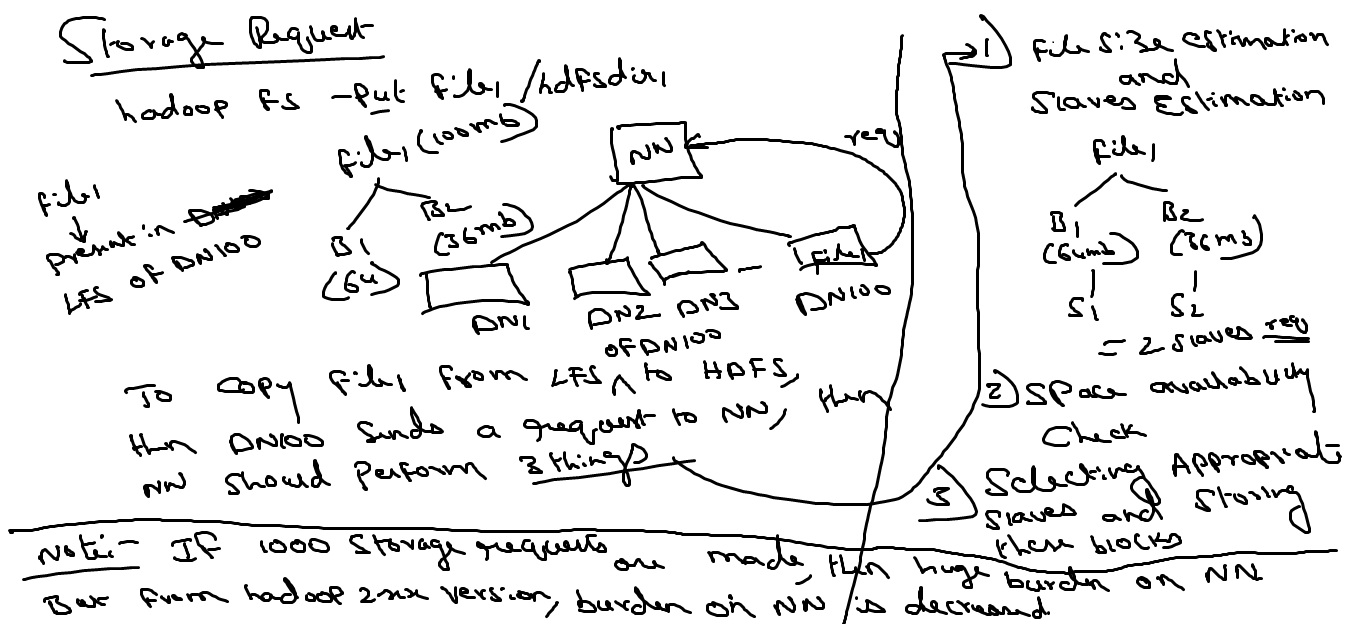 Storage Request
hadoop fs -Put file1 /hdfsdir1
file1 (100mb)
B1
(64)
B2
(36mb)
file1
↓
present in
LFS of DN100
NN
req
file1
DN1
DN2
DN3
DN100
To copy file1 from LFS ^ of DN100 to HDFS,
then DN100 sends a request to NN, then
NN should Perform 3 things
1) File Size Estimation
and
Slaves Estimation
file1
B1
(64mb)
B2
(36mb)
S1
S2
= 2 slaves req
2) Space availability
Check
3) Selecting Appropriate
slaves and Storing
these blocks
Note:- IF 1000 Storage requests are made, then huge burden on NN
But from hadoop 2.xx version, burden on NN is decreased